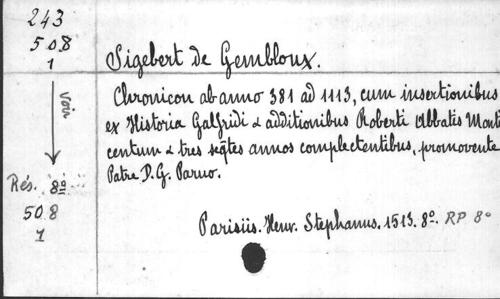 243
508
1
Sigebert de Gembloux.
Chronicon ab anno 381 ad 1113, cum insertionibus
ex Historia Galfridi & additionibus Roberti Abbatis Monti
centum & tres seqtes annos complectentibus, promovente
Patre D. G. Parvo.
voir
Rés. 8º
508
1
Parisiis. Henr. Stephanus. 1513. 8º. RP 8º